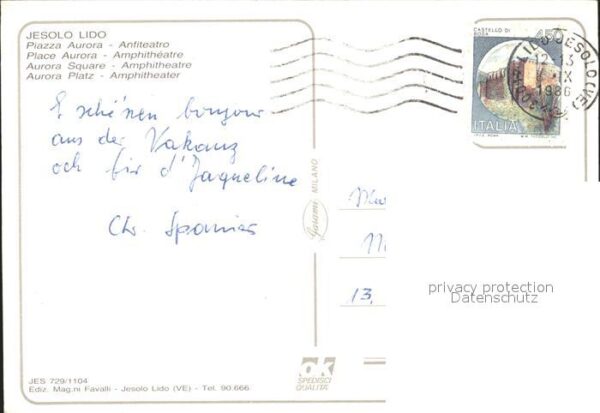 JESOLO LIDO
Piazza Aurora - Anfiteatro
Place Aurora - Amphithéatre
Aurora Square - Amphitheatre
Aurora Platz - Amphitheater
E sché'nen bonjour
aus der Vakanz
och fir d'Jaqueline
Chr. Spanier
CASTELLO DI
450
ITALIA
LIDO JESOLO (VE)
12-13
IX
1986
Garami MILANO
13,
privacy protection
Datenschutz
ok
SPEDISCI
QUALITÀ
JES 729/1104
Ediz. Mag.ni Favalli - Jesolo Lido (VE) - Tel. 90.666